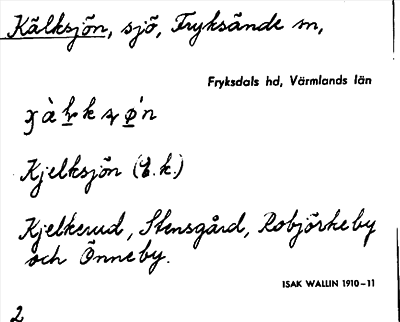 Kälksjön, sjö, Fryksände sn,
Fryksdals hd, Värmlands län
Kjelksjön (E.k.)
Kjelkerud, Stensgård, Robjörkeby
och Önneby.
ISAK WALLIN 1910-11
2